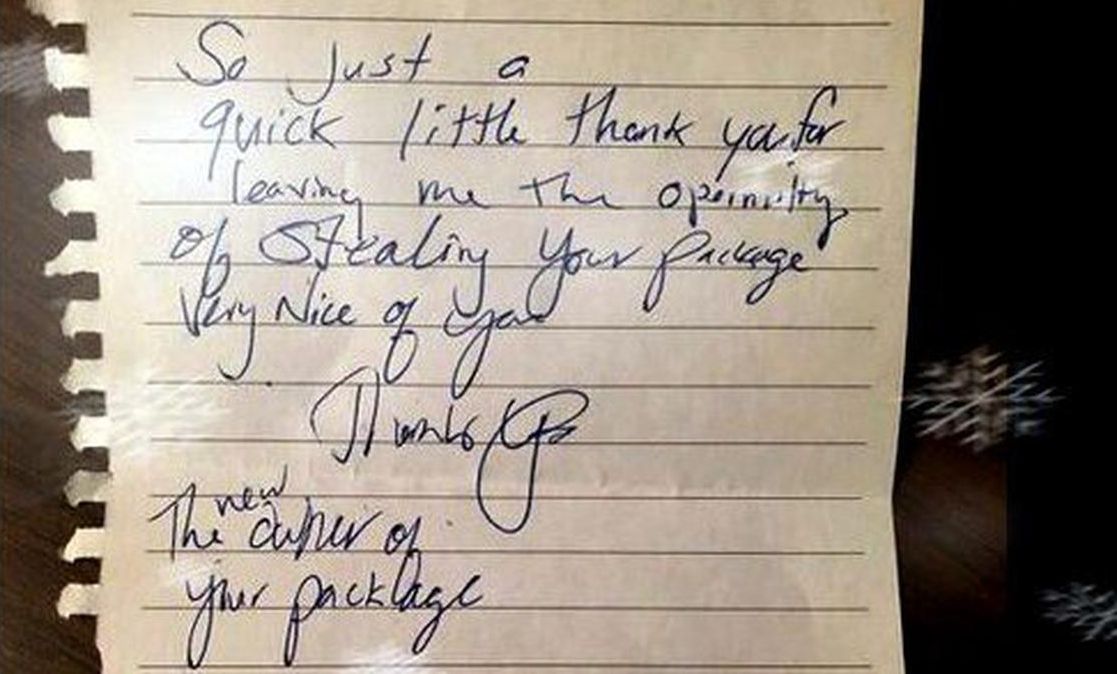 So Just a
quick little thank you for
leaving me the
of Stealing Your package
Very Nice of you
Thanks
new
The owner of
your packlage